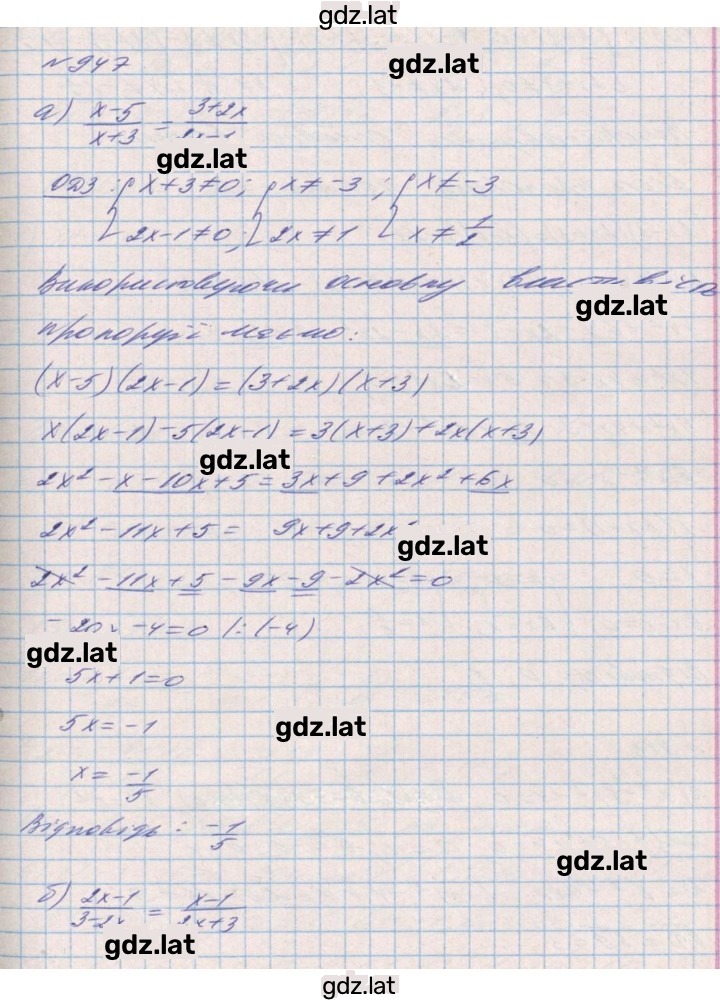 gdz.lat
№ 947
gdz.lat
а) x-5/x+3 = 3+2x/2x-1
gdz.lat
ОДЗ: { x+3≠0; { x≠-3; { x≠-3
{ 2x-1≠0; { 2x≠1 { x≠1/2
Використовуючи основну
gdz.lat
пропорції маємо:
(x-5)(2x-1)=(3+2x)(x+3)
x(2x-1)-5(2x-1)=3(x+3)+2x(x+3)
gdz.lat
2x²-x-10x+5=3x+9+2x²+6x
2x²-11x+5= 9x+9+2x²
gdz.lat
2x²-11x+5-9x-9-2x²=0
-20x-4=0 /:(-4)
gdz.lat
5x+1=0
5x=-1
gdz.lat
x= -1/5
Відповідь: -1/5
gdz.lat
б) 2x-1/3-2x = x-1/2x+3
gdz.lat
gdz.lat